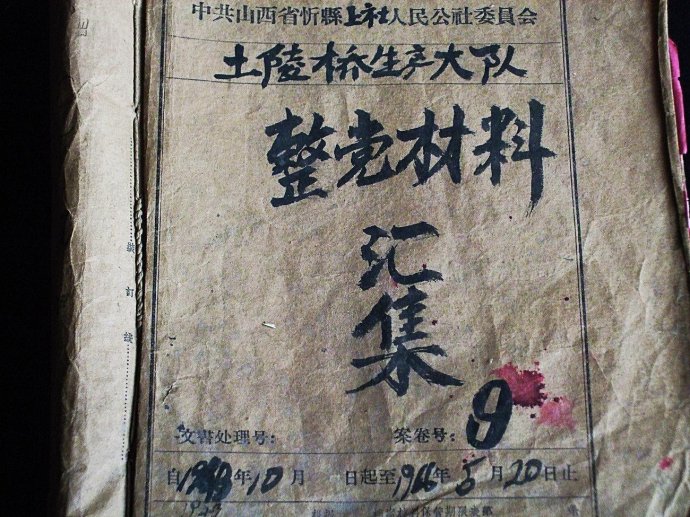 中共山西省忻縣上社人民公社委員会
土陵桥生产大队
整党材料
汇
集
文書处理号：
案卷号：9
自 年10月 日起至1966年5月20日止
装订线